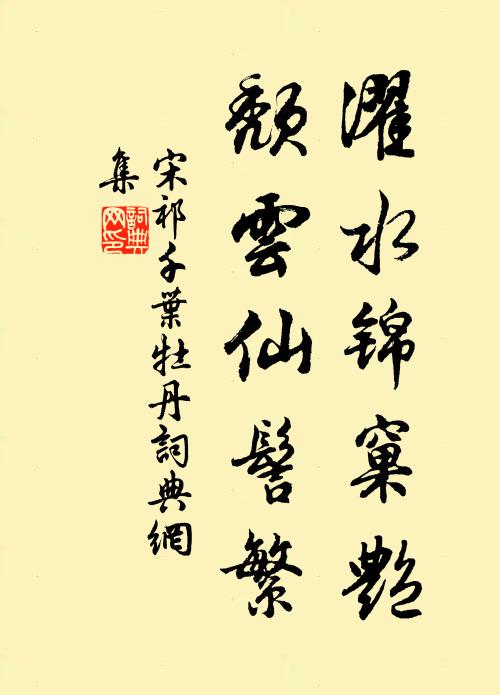 濯水锦窠艷
颓雲仙髻繁
宋祁千葉牡丹詞典網
集
詞典網印